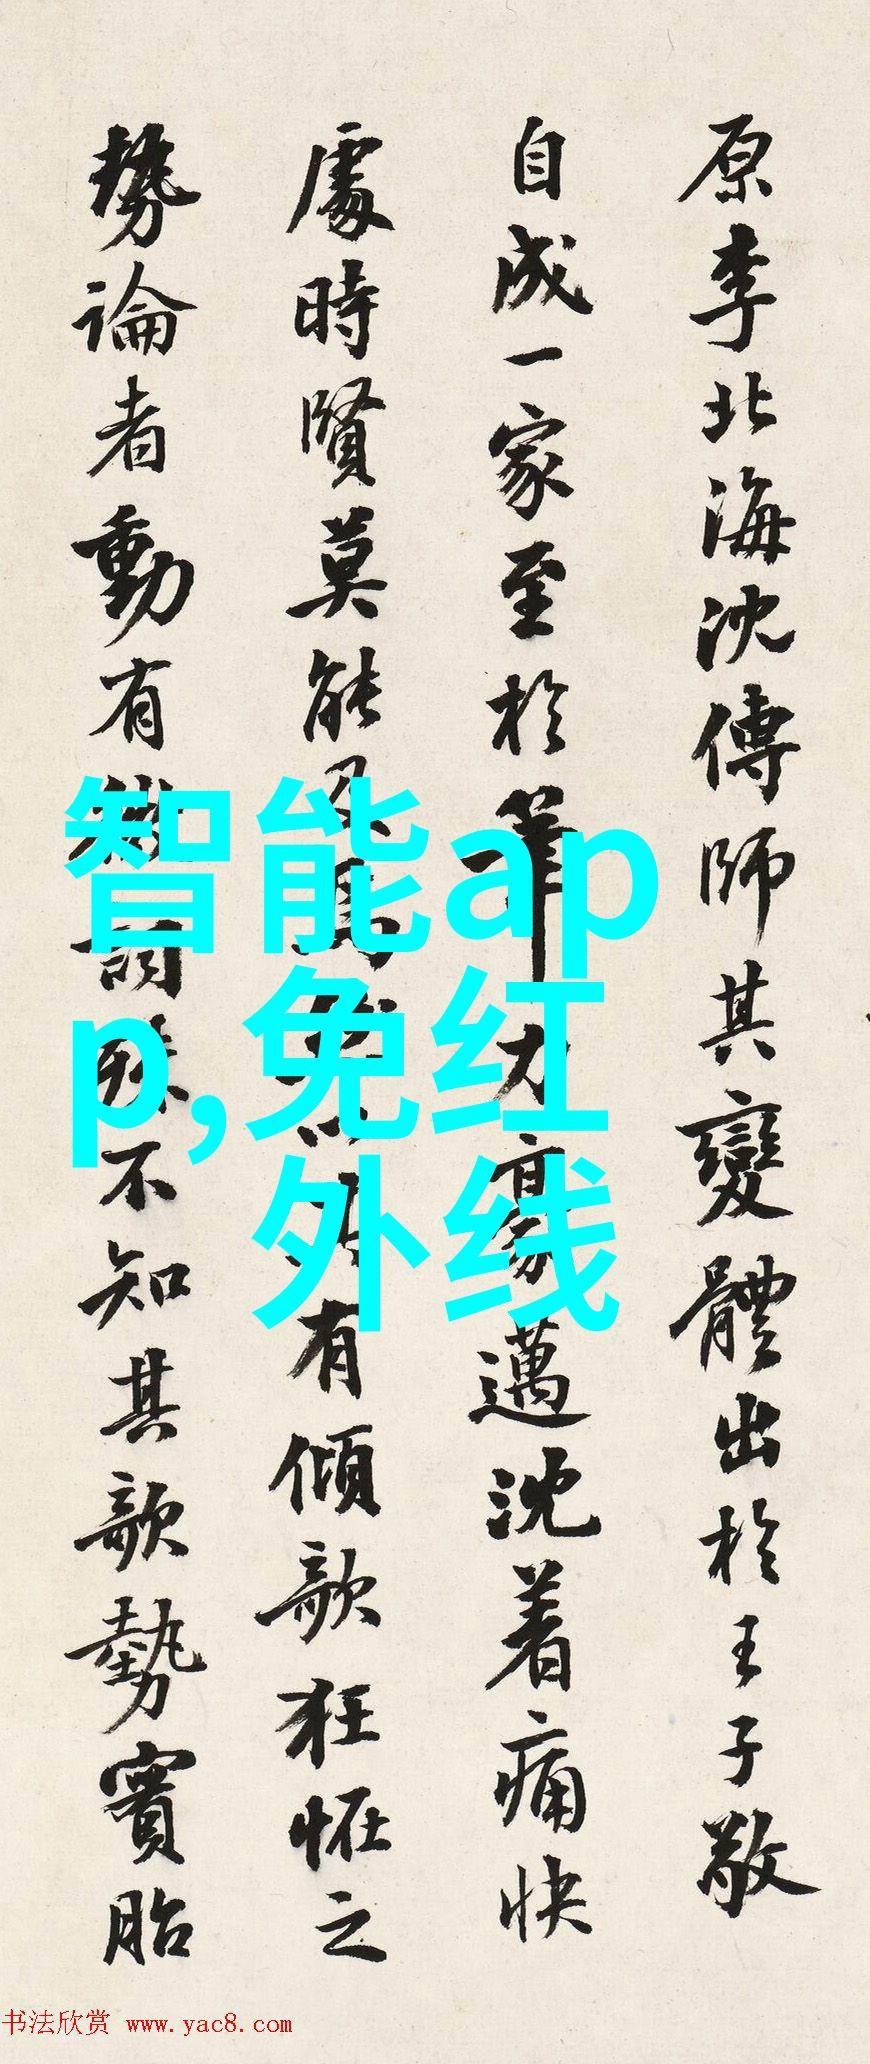 原李北海沈傳師其變體出於王子敬
自成一家至於筆力豪邁沈着痛快
處時賢莫能及有傾欹狂怪之
勢論者動有不知其欹勢實胎
智能ap
p,免红
外线
书法欣赏 www.yac8.com